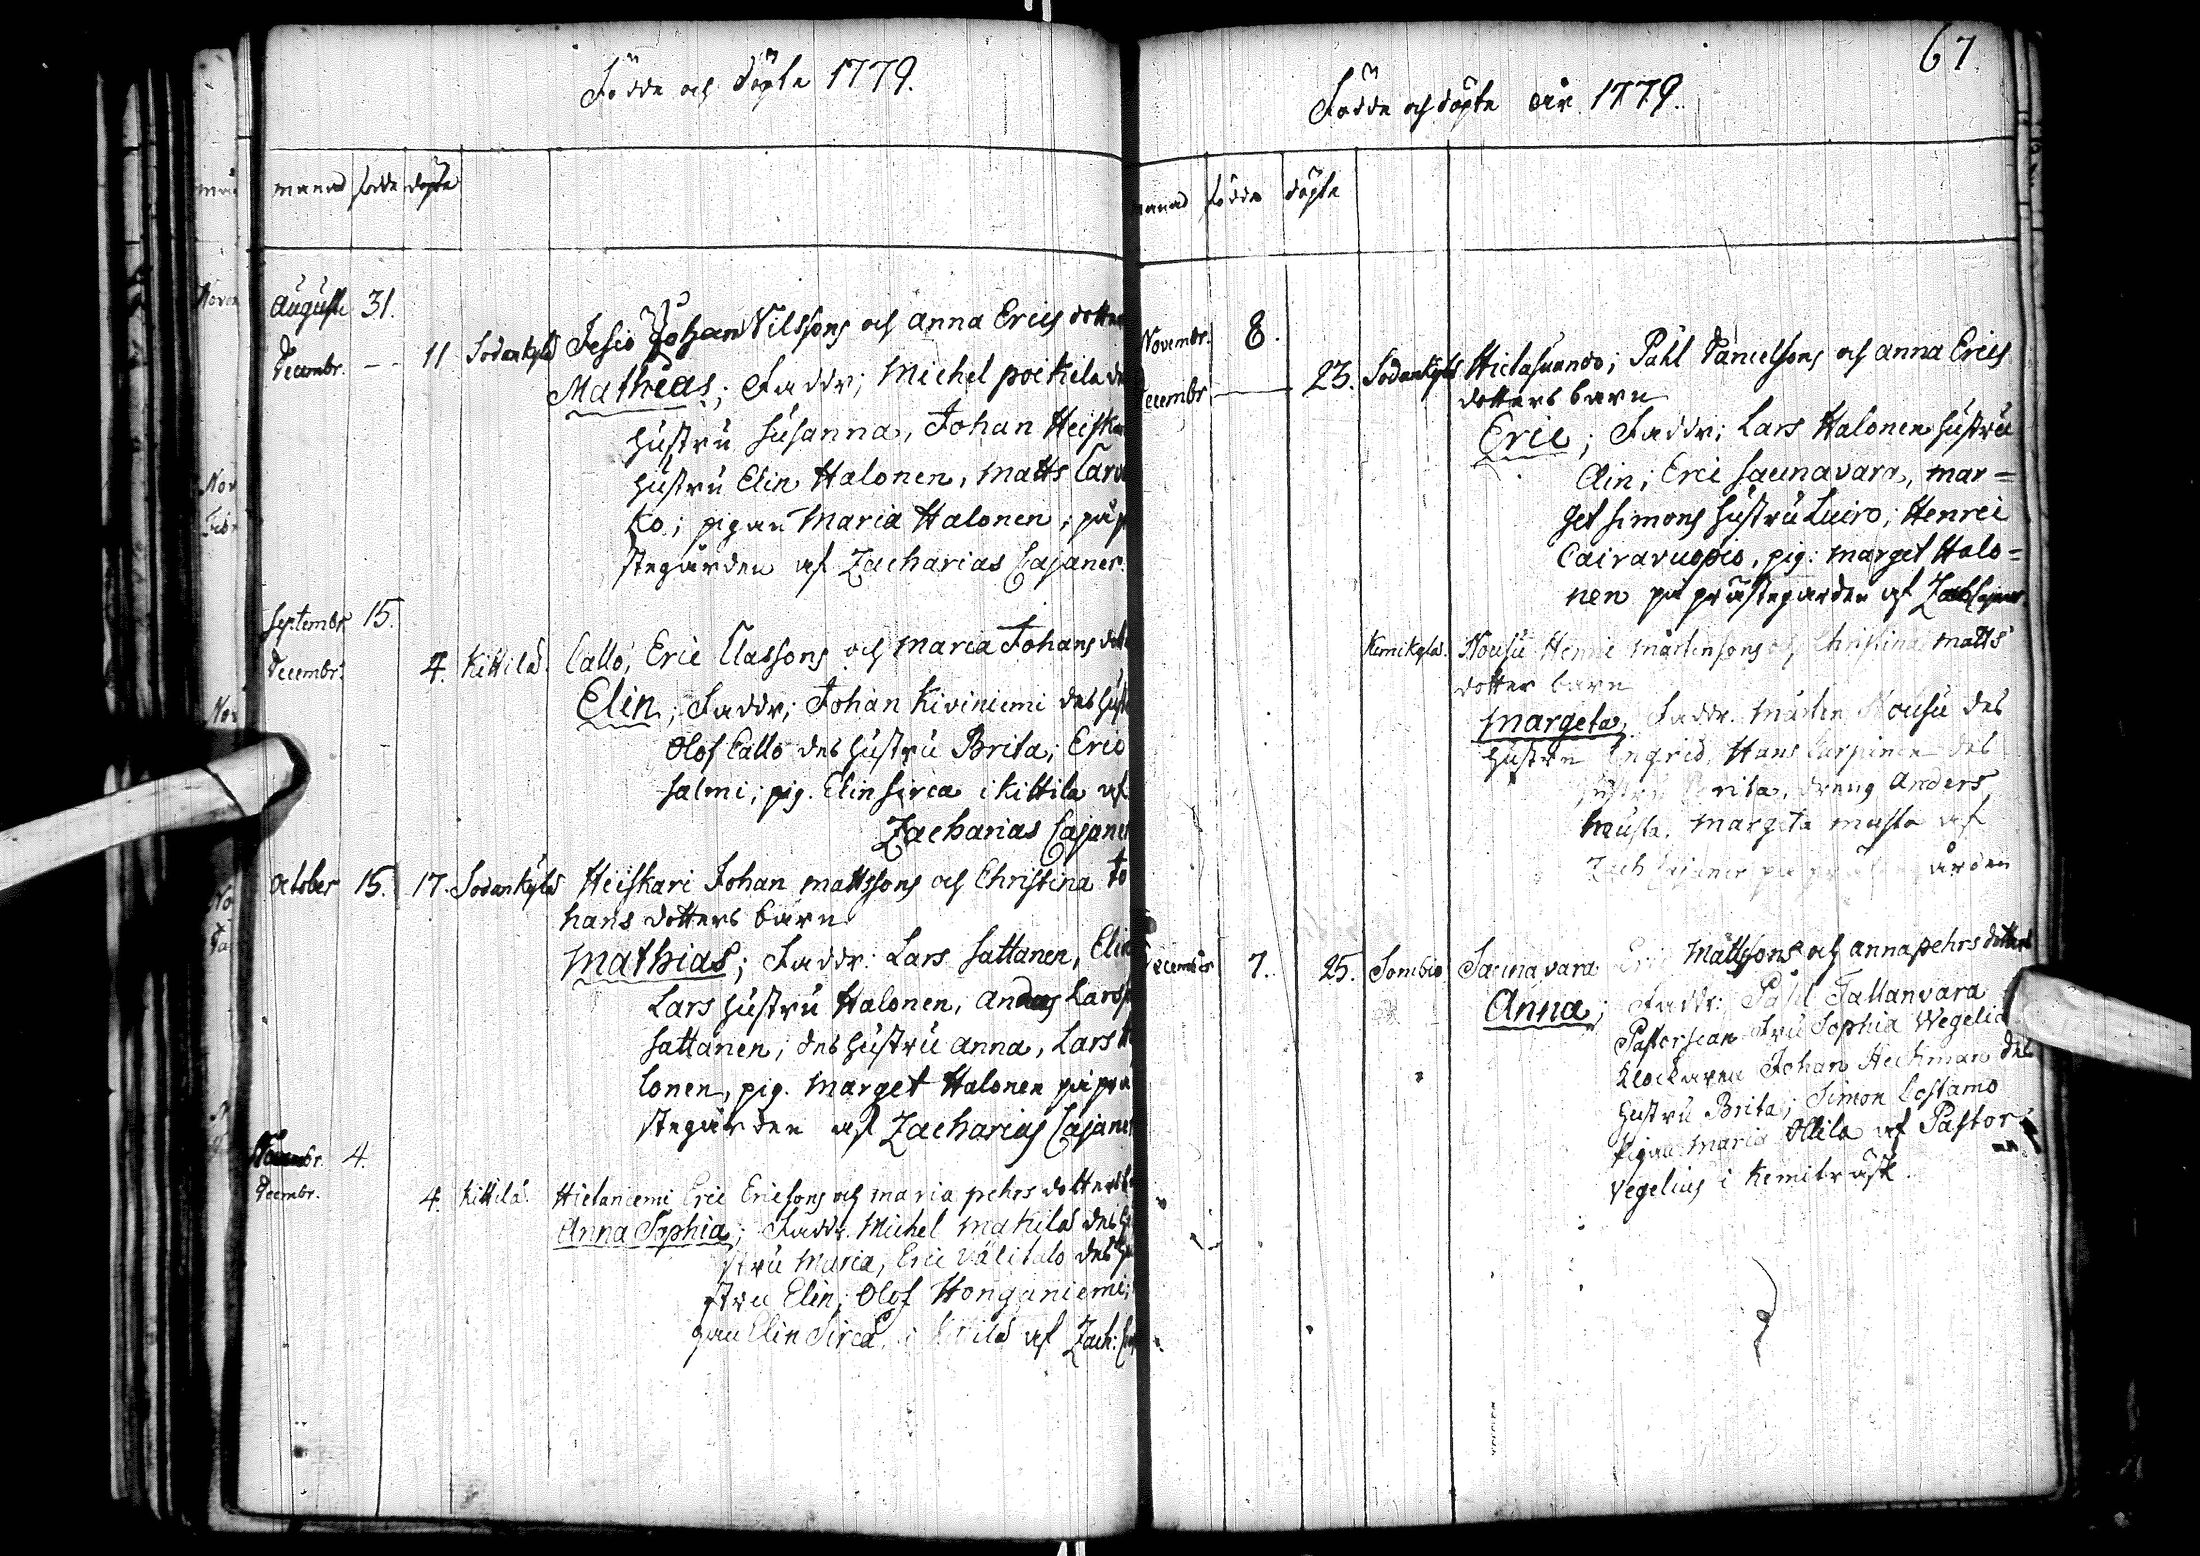 Födde och döpte 1779.
månad födde döpte
Augusti 31.
Decembr. — 11 Sodankylä Jesiö Johan Nilssons och Anna Erics dotter
Mathias; Faddr; Michel poikela de
hustru Susanna, Johan Heiska
hustru Elin Halonen, Matts Carv
ko; pigan Maria Halonen; på p
stegården af Zacharias Cajaner.
Septembr. 15.
Decembr. 4. Kittilä. Callo, Eric Classons och Maria Johans dot
Elin; Faddr; Johan Kiviniemi des hust
Olof Callo des hustru Brita; Eric
Salmi; pig. Elin Sirca i Kittila af
Zacharias Cajaner
October 15. 17. Sodankylä Heiskari Johan Mattssons och Christina Jo
hans dotters barn
Mathias; Faddr: Lars Sattanen, Elin
Lars hustru Halonen, Anders Larss
Sattanen; des hustru Anna, Lars H
lonen, pig. Marget Halonen på pra
stegården af Zacharias Cajaner
Novembr. 4.
Decembr. 4. Kittilä. Hietaniemi Eric Ericsons och Maria pehrs dotters b
Anna Sophia; Faddr. Michel Makila des hu
stru Maria, Eric Välitalo des hu
stru Elin; Olof Honganiemi;
gan Elin Sirca i Kittilä af Zach: Caj
67
Födde och döpte år 1779.
månad födde döpte
Novembr. 8.
Decembr — 23. Sodankylä Hietasuando; Påhl Danielsons och Anna Erics
dotters barn
Eric; Faddr; Lars Halonen hustru
Elin; Eric Saunavara, Mar=
get Simons hustru Luiro; Henric
Cairavuopio, pig: Marget Halo=
nen på prästegården af Zach Cajaner
Kemikylä. Nousu Henric Mårtensons och Christina Matts
dotter barn
Margeta; Faddr. Mårten Nousu des
hustru Ingrid, Hans Curpinen des
hustru Brita, dreng Anders
Musta. Margeta Musta af
Zach Cajaner på prästegården
December 7. 25. Sombio Saunavara Eric Mattssons och Anna pehrs dotters
Anna; Faddr: Påhl Tallanvara
Pastorskan Fru Sophia Wegelia
Klockaren Johan Heckman des
hustru Brita; Simon Lostamo
Pigan Maria Ollila af Pastor
Vegelius i Kemiträsk.